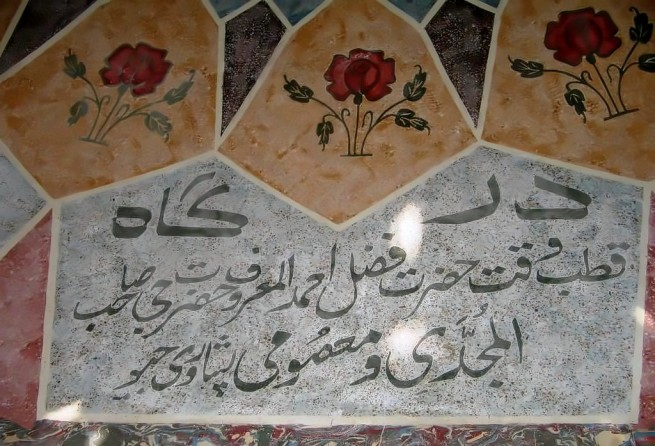 درگاہ
قطب وقت حضرت فضل احمد المعروف حضرت جی صاحب
المجُدَّدی و معصُومی پشاوری